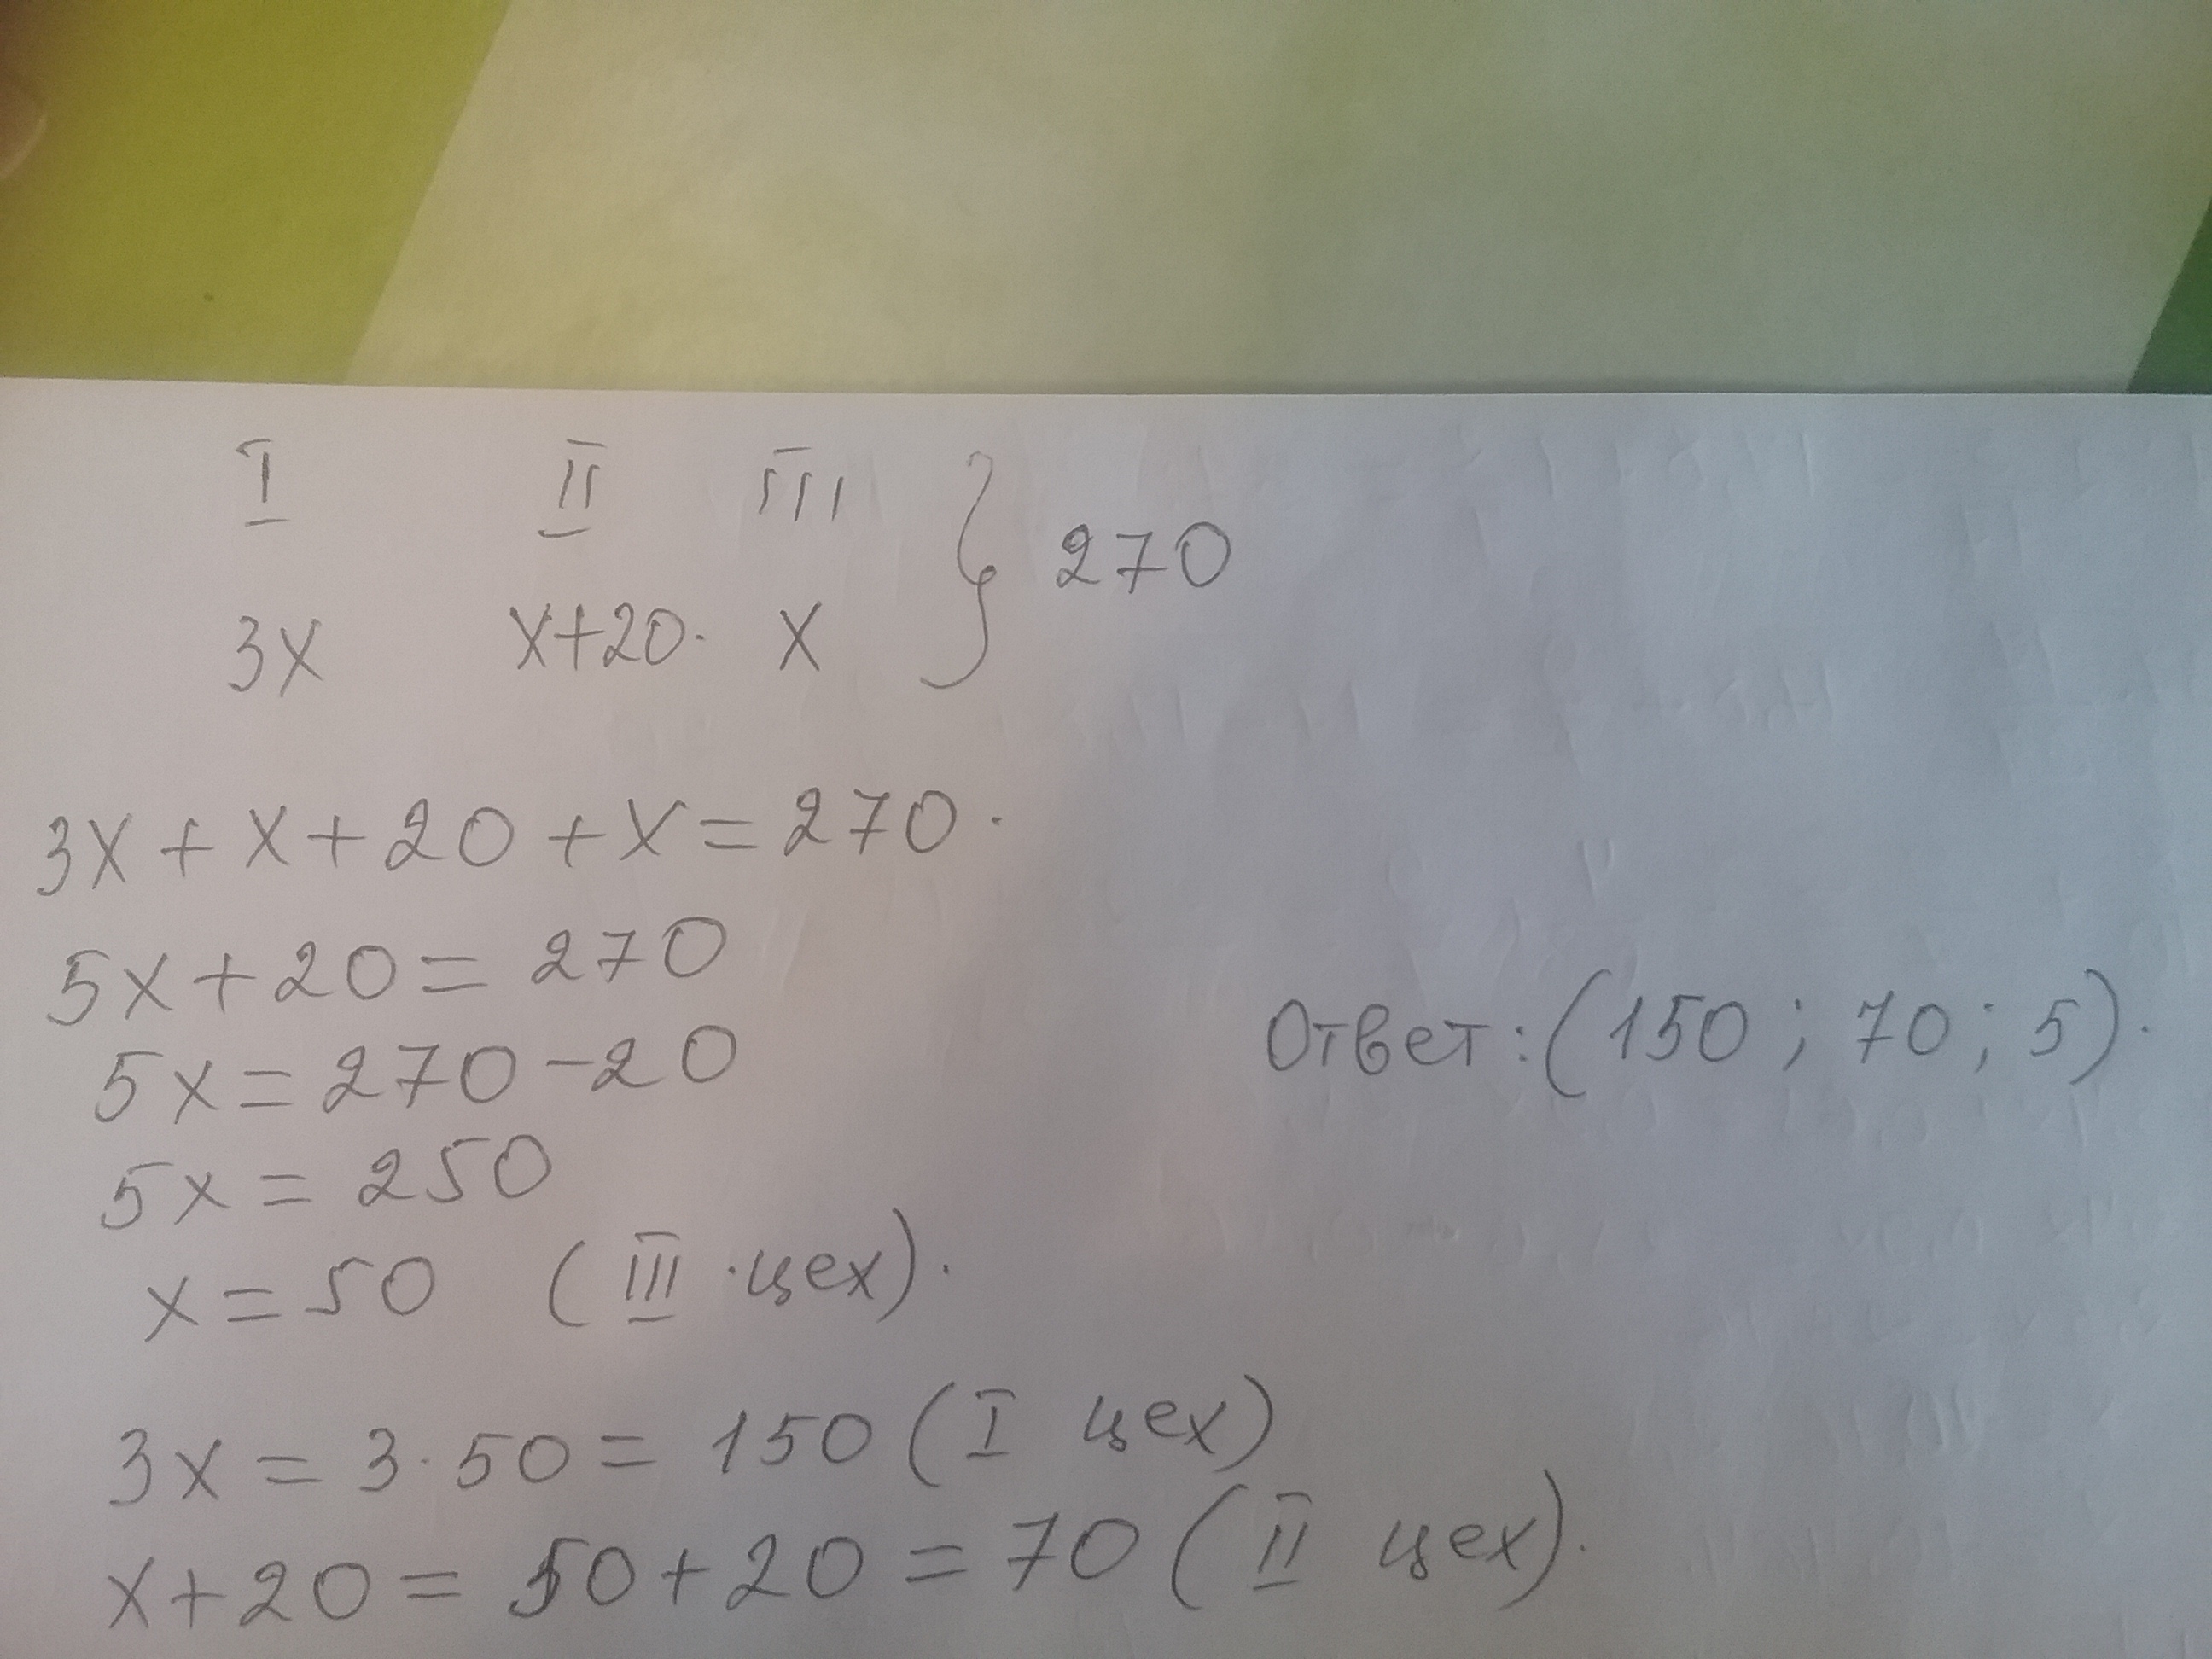 I II III } 270
3x x+20. x
3x + x + 20 + x = 270.
5x + 20 = 270
5x = 270 - 20
5x = 250
x = 50 (III цех).
3x = 3·50 = 150 (I цех)
x + 20 = 50 + 20 = 70 (II цех).
Ответ: (150; 70; 5).